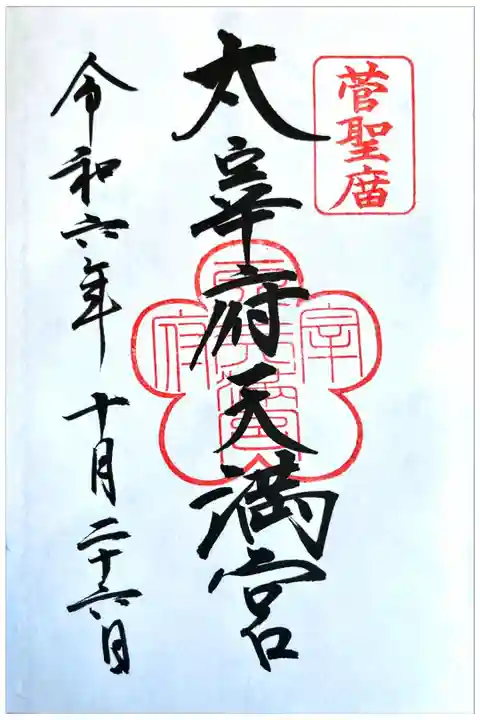 菅聖庿
太宰府天満宮
令和六年十月二十六日